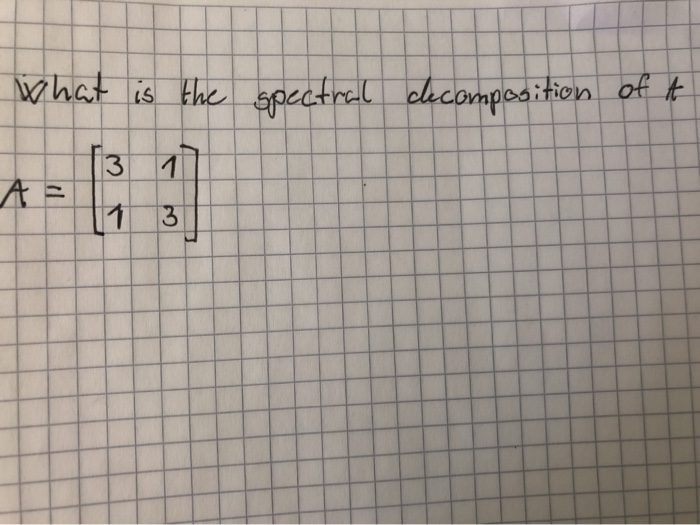 What is the spectral decomposition of A
A = [3 1
1 3]